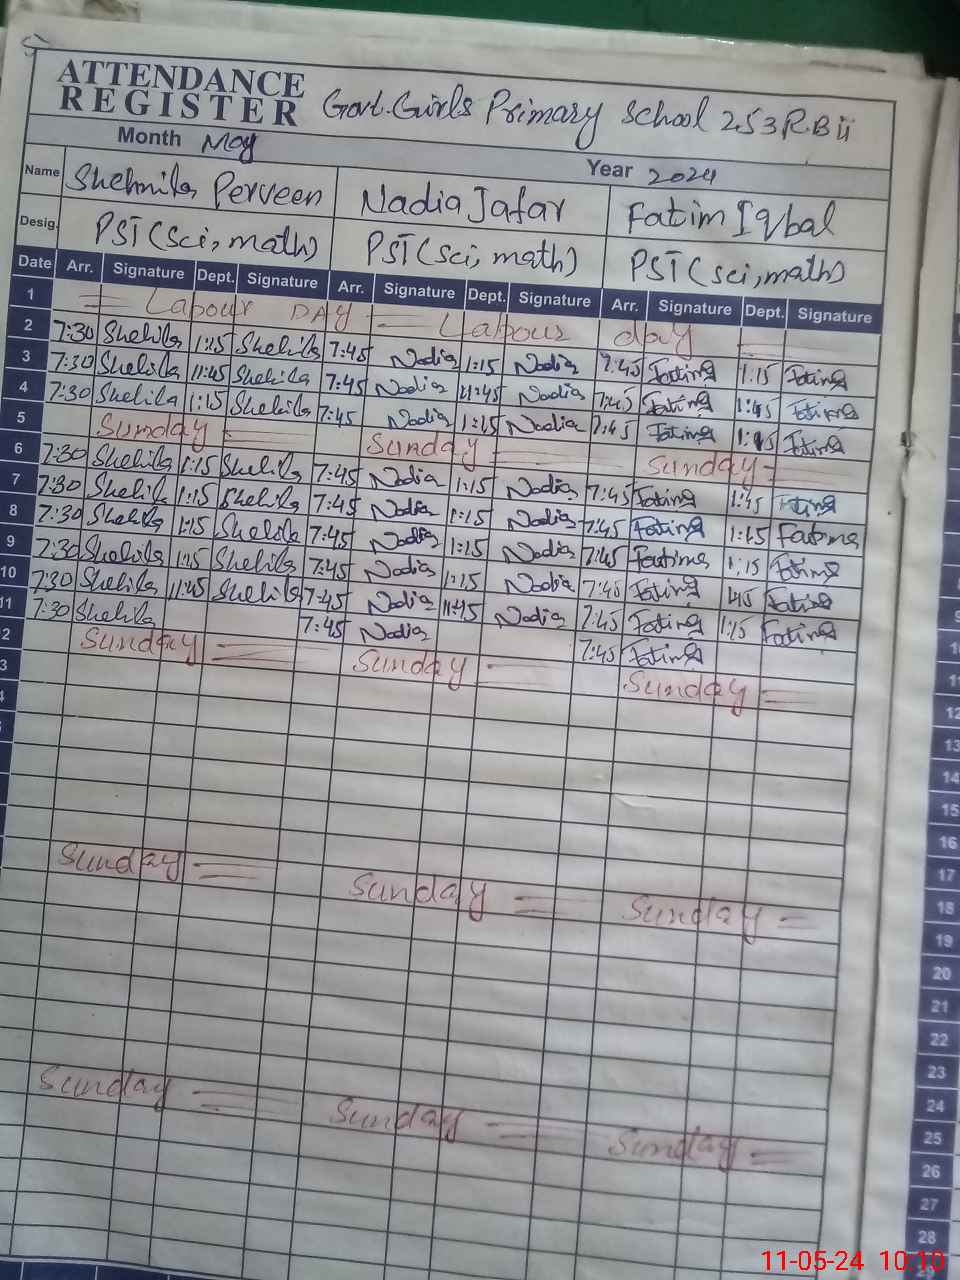 ATTENDANCE
REGISTER Govt. Girls Primary School 253 R.B ii
Month May Year 2024
Name Shehnila Perveen Nadia Jafar Fatim Iqbal
Desig. PST (sci, math) PST (sci, math) PST (sci, math)
Date Arr. Signature Dept. Signature Arr. Signature Dept. Signature Arr. Signature Dept. Signature
1 = Labour DAY = Labour day =
2 7:30 Shehila 1:15 Shehila 7:45 Nadia 1:15 Nadia 7:45 Fatima 1:15 Fatima
3 7:30 Shehila 11:45 Shehila 7:45 Nadia 11:45 Nadia 7:45 Fatima 1:45 Fatima
4 7:30 Shehila 1:15 Shehila 7:45 Nadia 1:15 Nadia 7:45 Fatima Fatima
5 Sunday Sunday Sunday
6 7:30 Shehila 1:15 Shehila 7:45 Nadia 1:15 Nadia 7:45 Fatima 1:45 Fatima
7 7:30 Shehila 1:15 Shehila 7:45 Nadia 1:15 Nadia 7:45 Fatima 1:45 Fatima
8 7:30 Shehila 1:15 Shehila 7:45 Nadia 1:15 Nadia 7:45 Fatima 1:15 Fatima
9 7:30 Shehila 1:15 Shehila 7:45 Nadia 1:15 Nadia 7:45 Fatima 1:45 Fatima
10 7:30 Shehila 11:45 Shehila 7:45 Nadia 11:45 Nadia 7:45 Fatima 1:15 Fatima
11 7:30 Shehila 7:45 Nadia 7:45 Fatima
2 Sunday Sunday Sunday
3
Sunday Sunday Sunday
Sunday Sunday Sunday
11
12
13
14
15
16
17
18
19
20
21
22
23
24
25
26
27
28
11-05-24 10:10